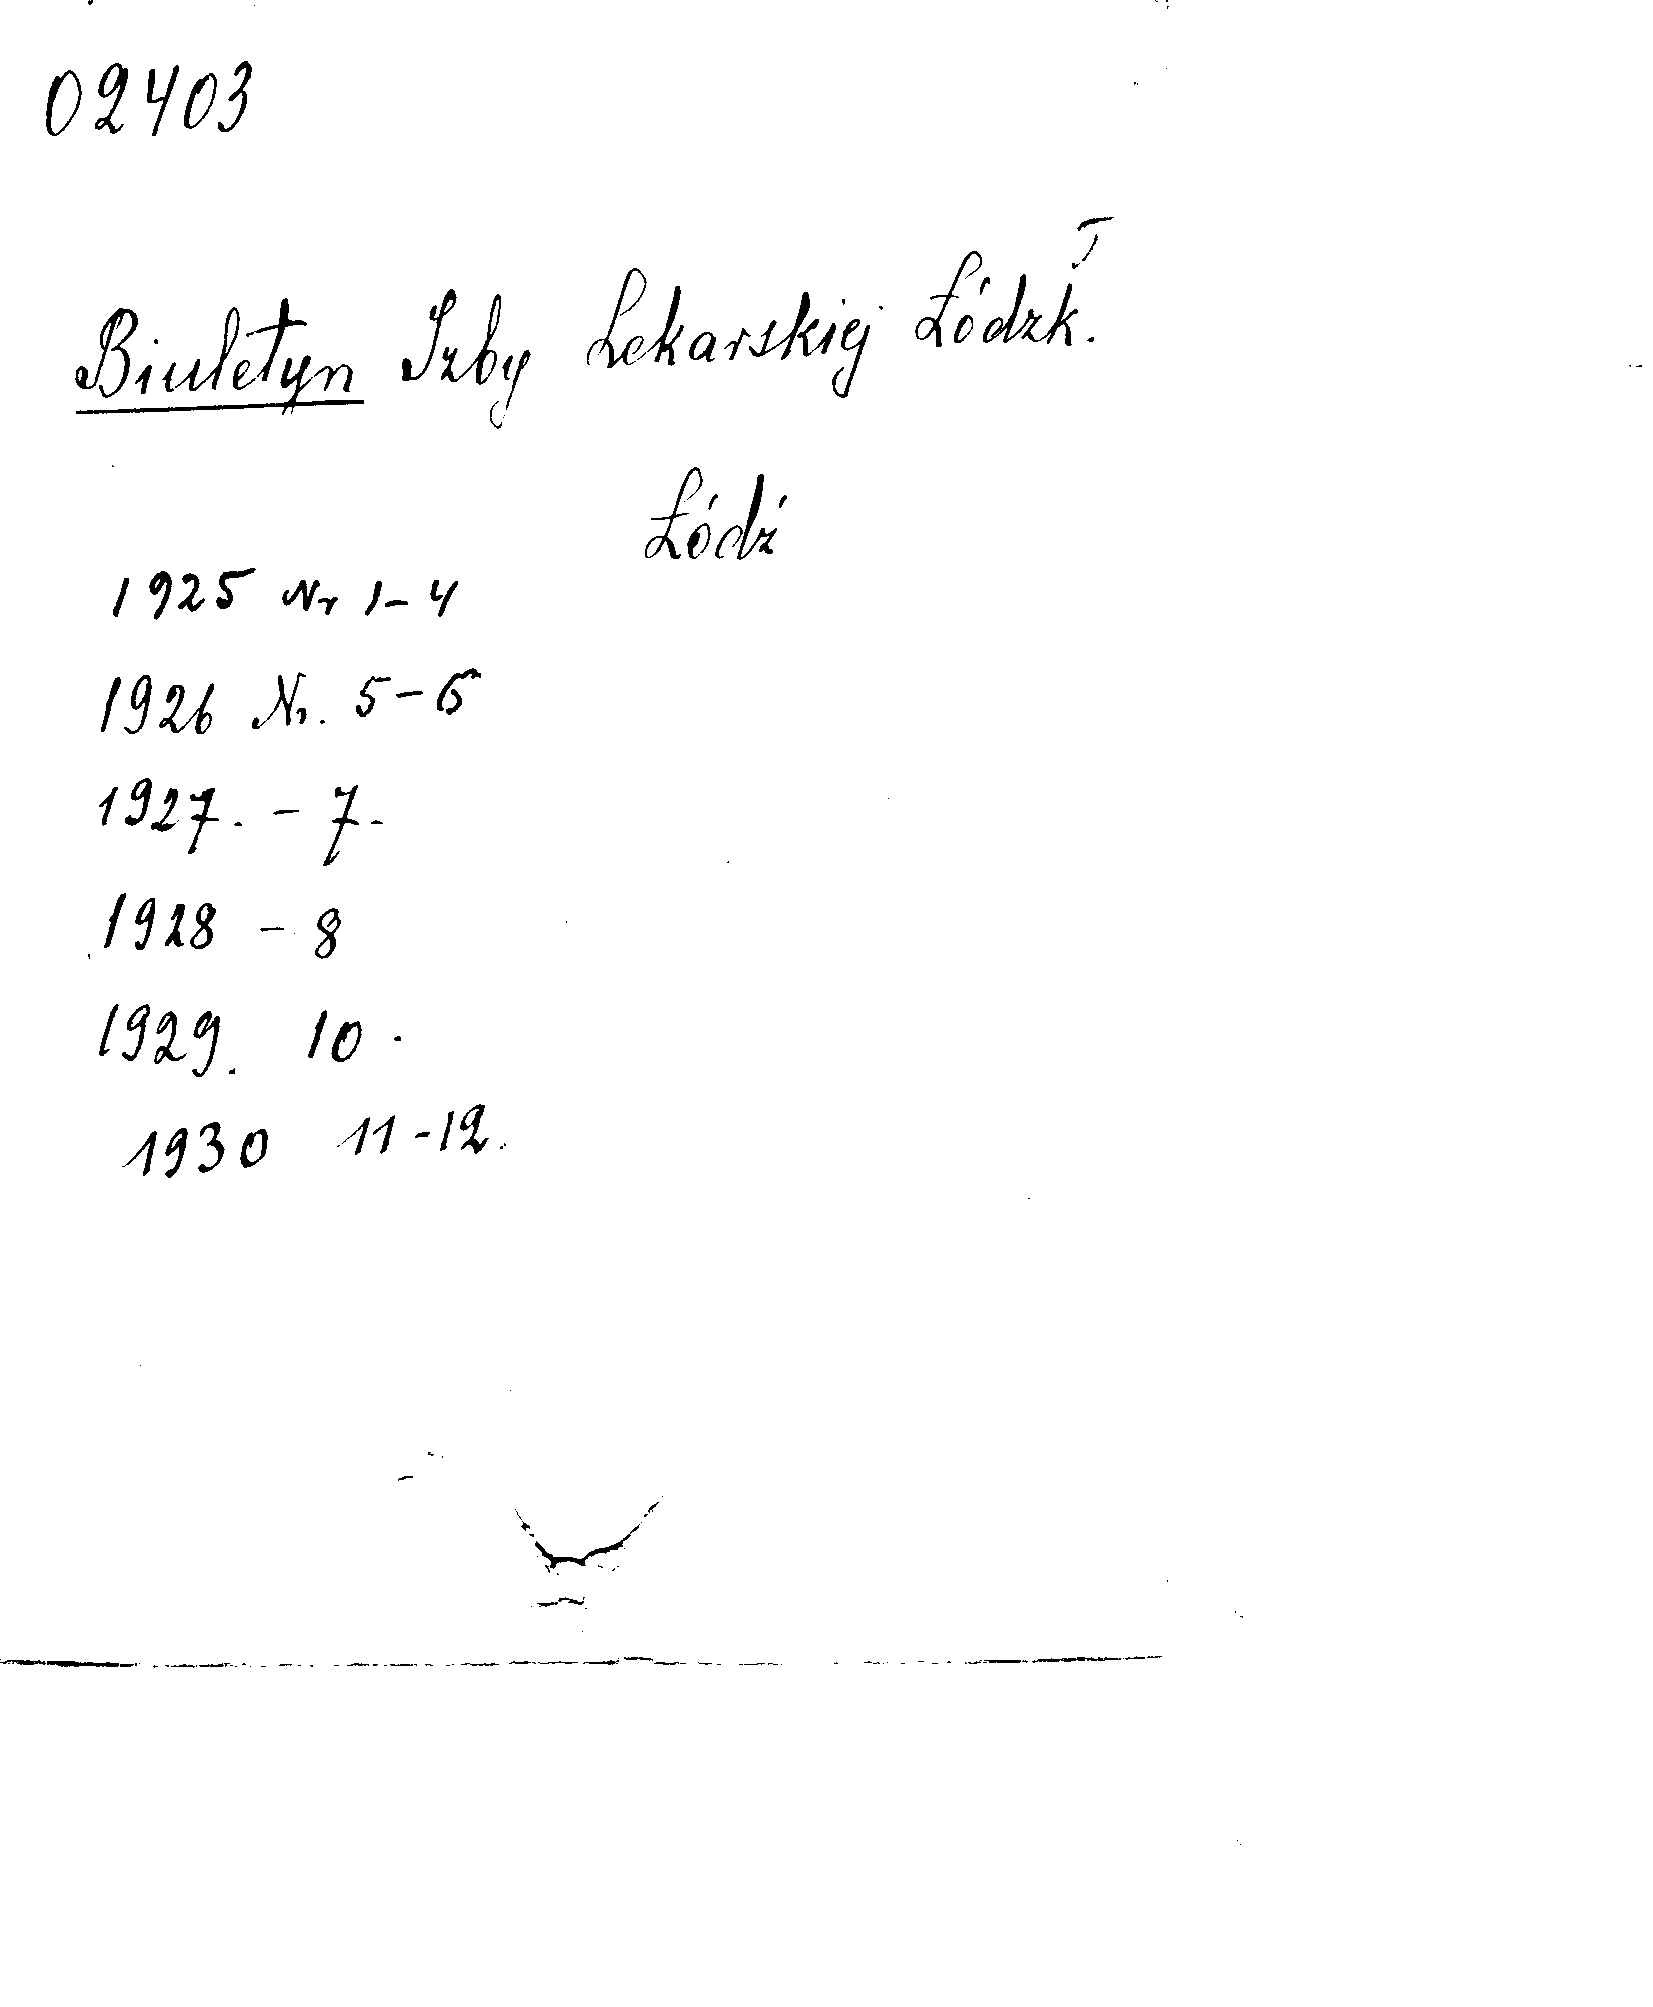 02403
I
Biuletyn Izby Lekarskiej Łódzk.
Łódź
1925 Nr 1-4
1926 Nr. 5-6
1927. - 7.
1928 - 8
1929. 10.
1930 11-12.